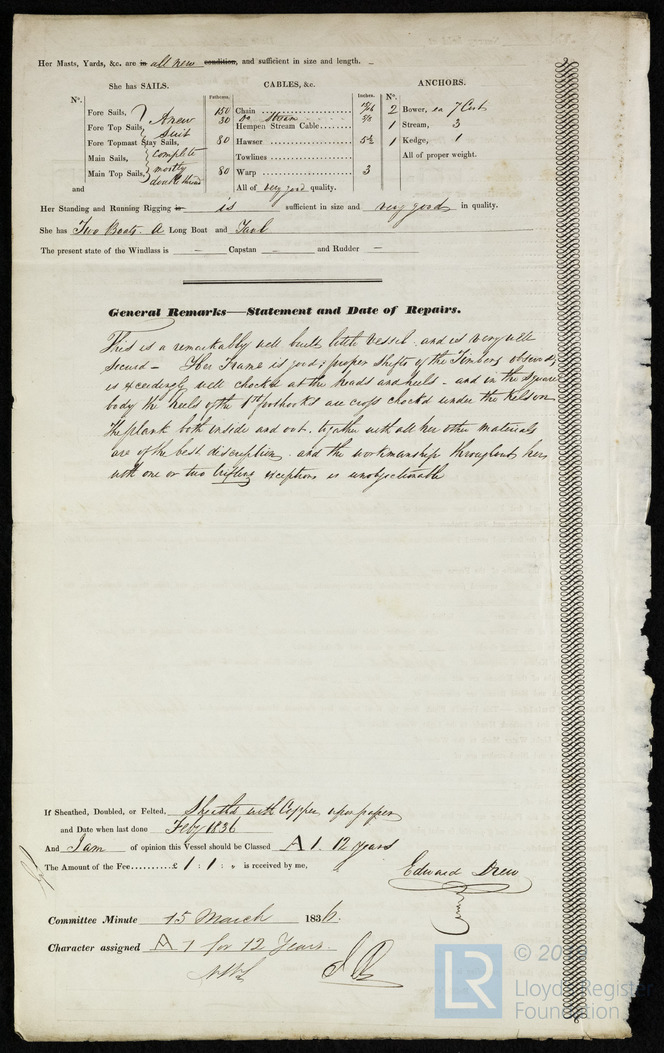 Her Masts, Yards, &c. are in all new condition, and sufficient in size and length.
She has SAILS. CABLES, &c. ANCHORS.
N°. Fathoms. Inches. N°.
Fore Sails, A new 150 Chain 2 Bower, ea 7 Cwt
Fore Top Sails, suit 30 Do Stream
Hempen Stream Cable 1 Stream, 3
Fore Topmast Stay Sails, complete 80 Hawser 5½ 1 Kedge, 1
Main Sails, mostly Towlines All of proper weight.
Main Top Sails, double 80 Warp 3
and All of very good quality.
Her Standing and Running Rigging is is sufficient in size and very good in quality.
She has Two Boats. A Long Boat and
The present state of the Windlass is — Capstan — and Rudder —
General Remarks—Statement and Date of Repairs.
This is a remarkably well built little Vessel. and is very well
secured — Her Frame is good & proper Shifts of the Timbers observed,
is exceedingly well chocked at the heads and heels - and in the square
body the heels of the 1st foothooks are cross chock'd under the Kelson
The plank both inside and out. together with all her other materials
are of the best description. and the workmanship throughout her
with one or two trifling exceptions is unobjectionable
If Sheathed, Doubled, or Felted, Sheath'd with Copper, upon paper
and Date when last done Feby 1836
And I am of opinion this Vessel should be Classed A 1. 12 years
The Amount of the Fee..........£ 1 : 1 : „ is received by me,
Edward Drew
Committee Minute 15 March 1836.
Character assigned A 1 for 12 Years.
LR
Lloyd's Register
Foundation